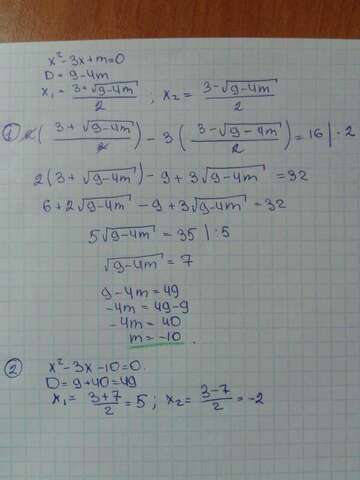 x² - 3x + m = 0
D = 9 - 4m
x₁ = (3 + √(9 - 4m))/2 ; x₂ = (3 - √(9 - 4m))/2
① 2((3 + √(9 - 4m))/2) - 3((3 - √(9 - 4m))/2) = 16 | · 2
2(3 + √(9 - 4m)) - 9 + 3√(9 - 4m) = 32
6 + 2√(9 - 4m) - 9 + 3√(9 - 4m) = 32
5√(9 - 4m) = 35 | : 5
√(9 - 4m) = 7
9 - 4m = 49
-4m = 49 - 9
-4m = 40
m = -10.
② x² - 3x - 10 = 0.
D = 9 + 40 = 49
x₁ = (3 + 7)/2 = 5 ; x₂ = (3 - 7)/2 = -2